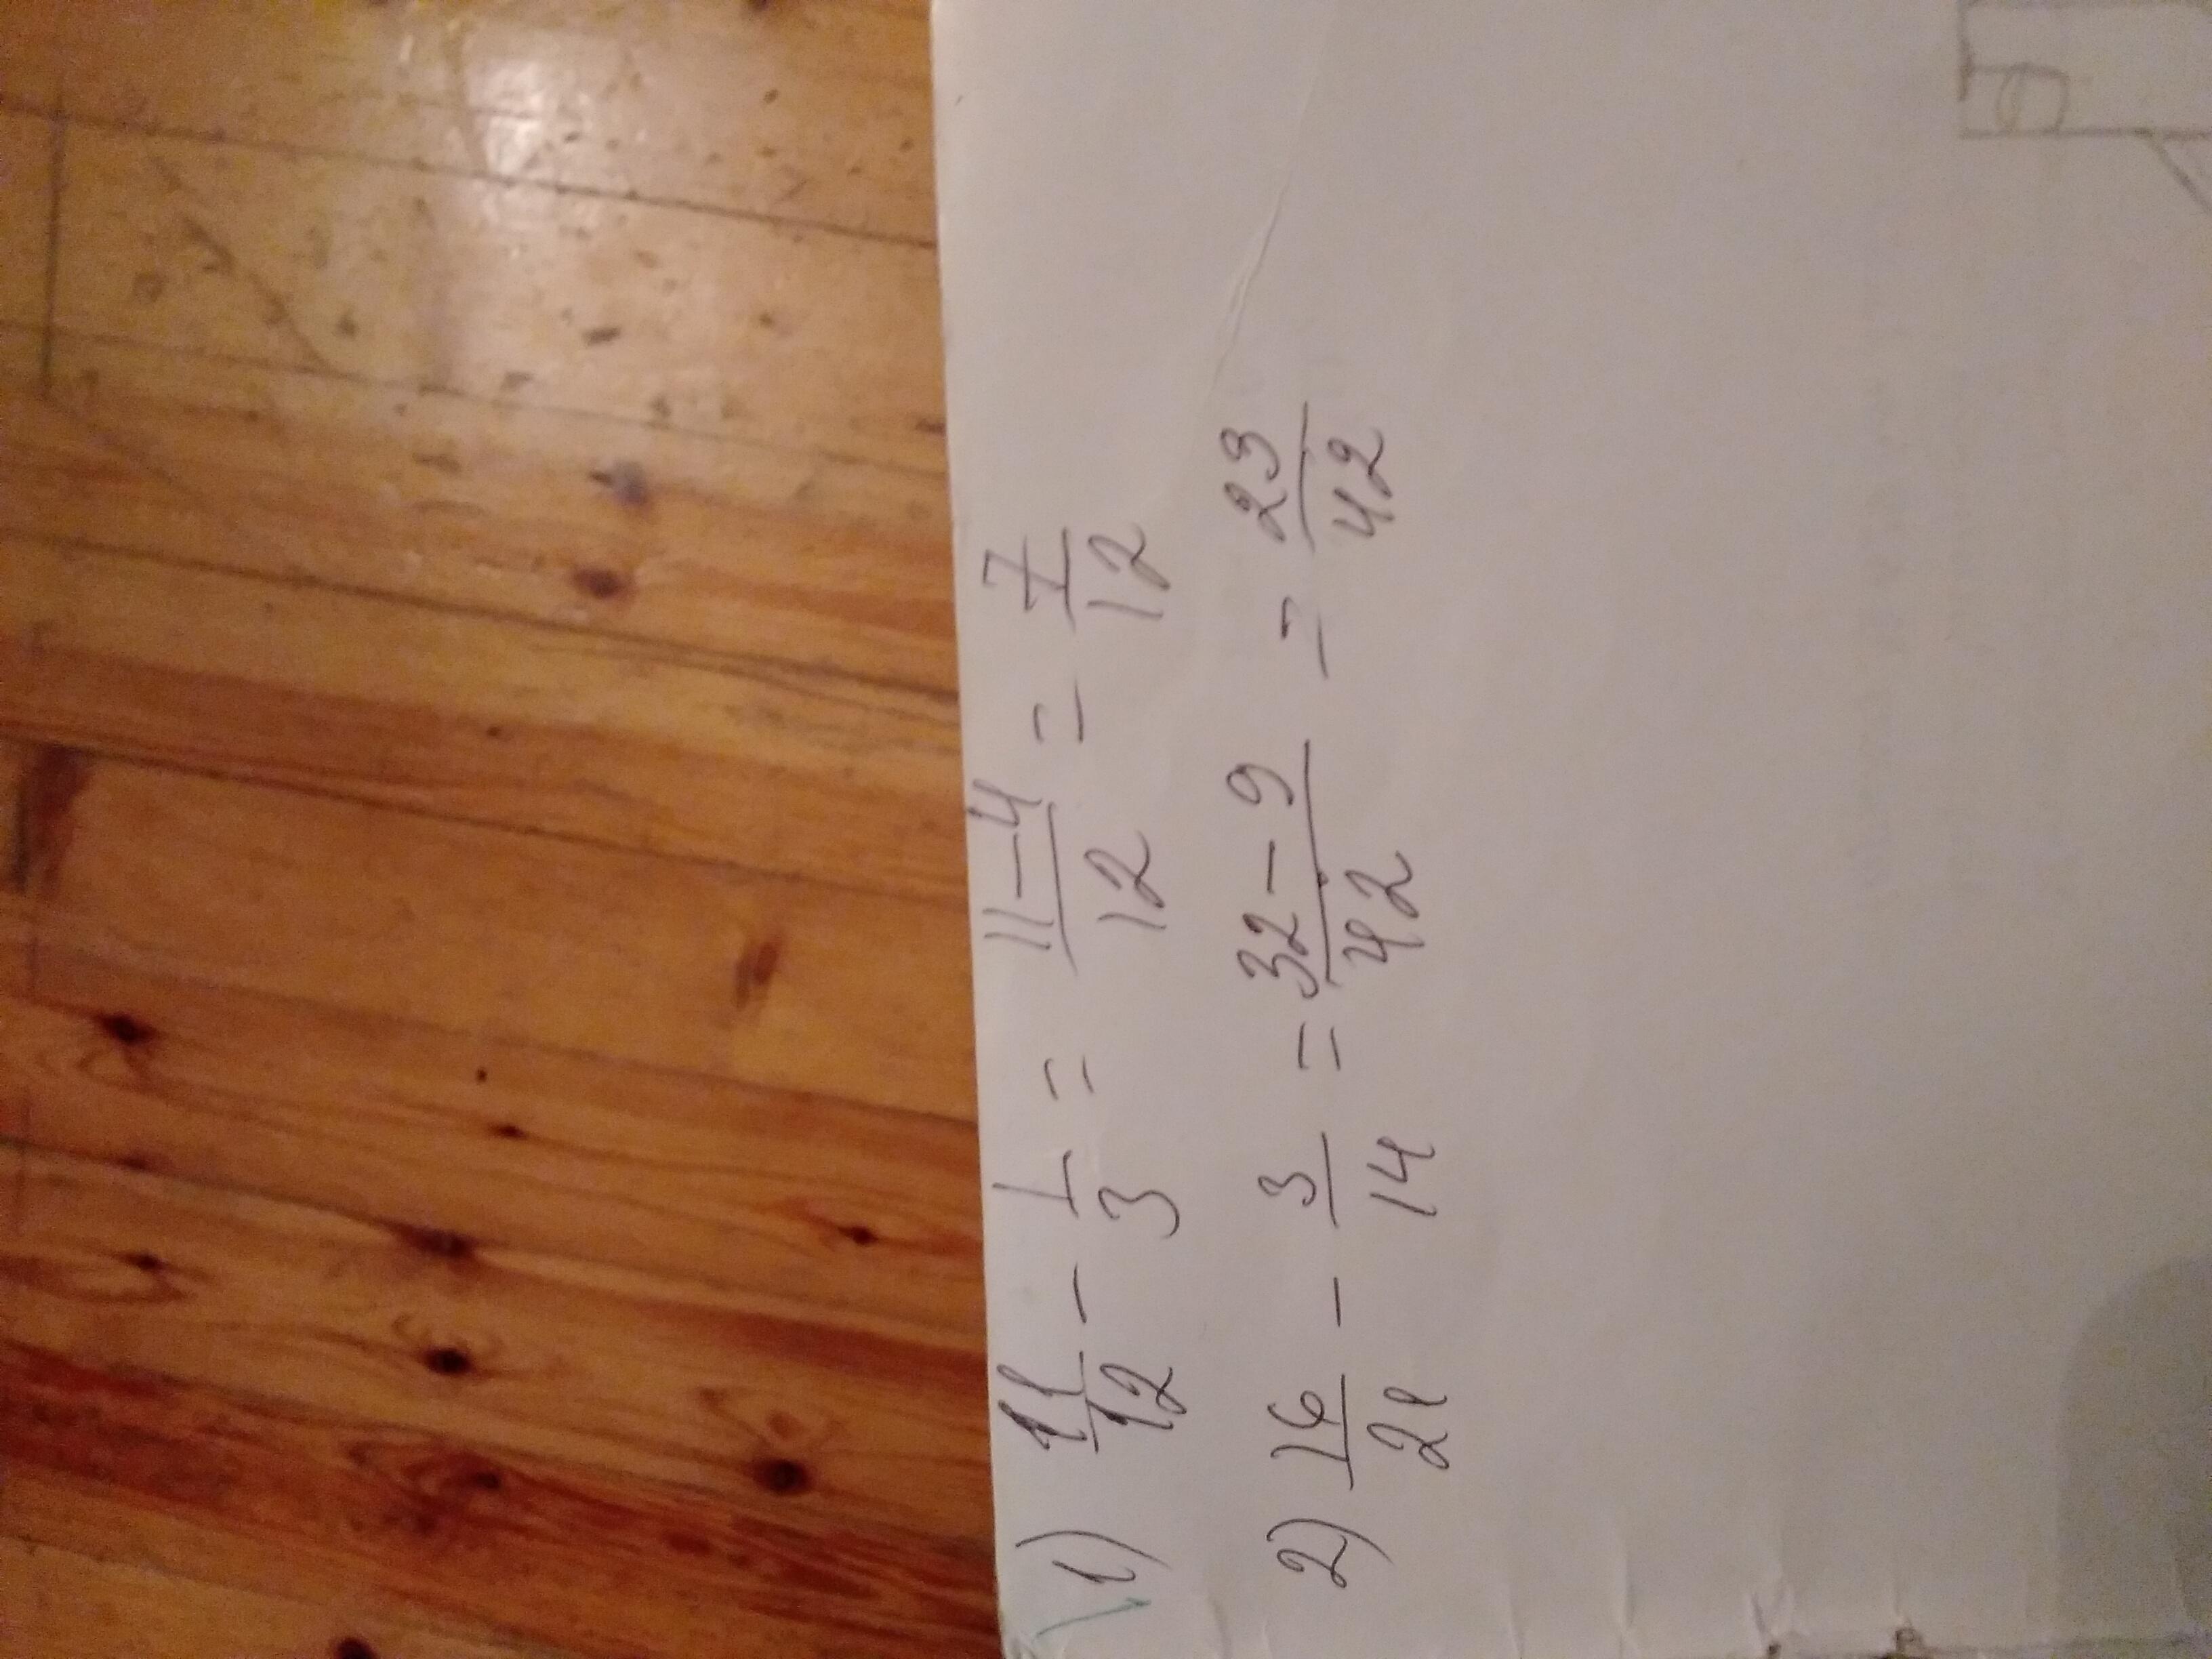 1) 11/12 - 1/3 = 11-4/12 = 7/12
2) 16/21 - 3/14 = 32-9/42 = 23/42